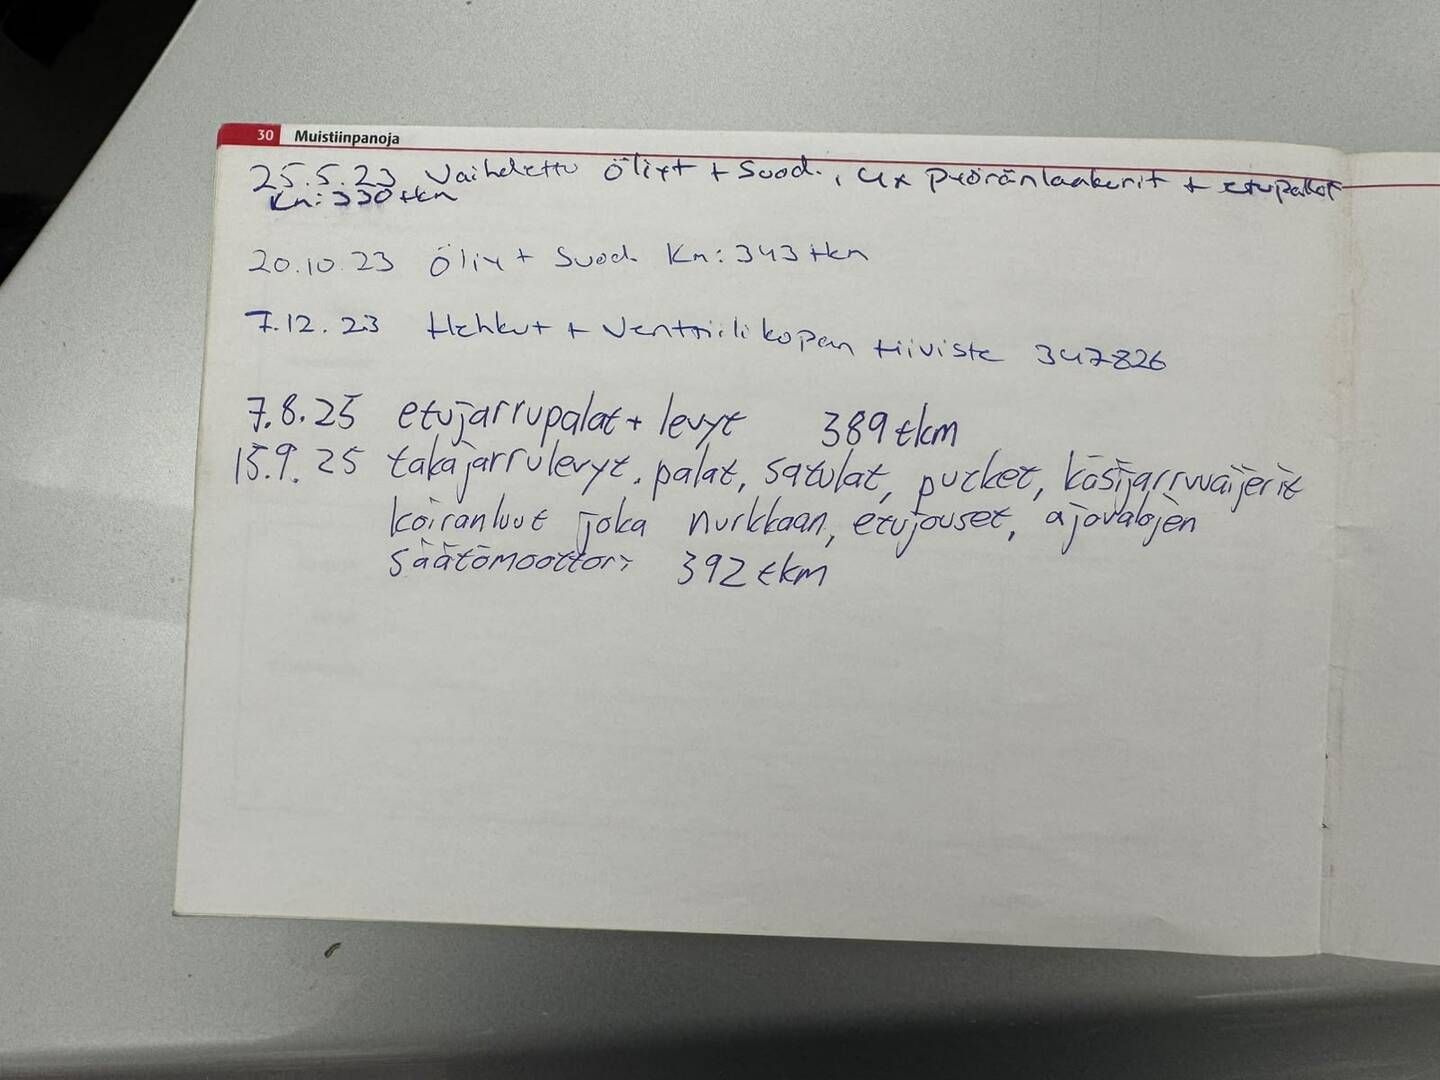 30 Muistiinpanoja
25.5.23 Vaihdettu Öljyt + Suod., 4x Pyöränlaakerit + etupalat
Km: 330tkm
20.10.23 Öljyt + Suod. Km: 343tkm
7.12.23 Hehkut + Venttiilikopan tiiviste 347826
7.8.25 etujarrupalat + levyt 389tkm
15.9.25 takajarrulevyt, palat, satulat, putket, käsijarruvaijerit
koiranluut joka nurkkaan, etujouset, ajovalojen
säätömoottori 392tkm